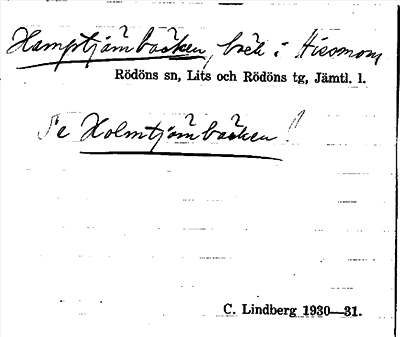 Hamptjärnbäcken, bäck i
Rödöns sn, Lits och Rödöns tg, Jämtl. l.
Se Holmtjärnbäcken!
C. Lindberg 1930—31.